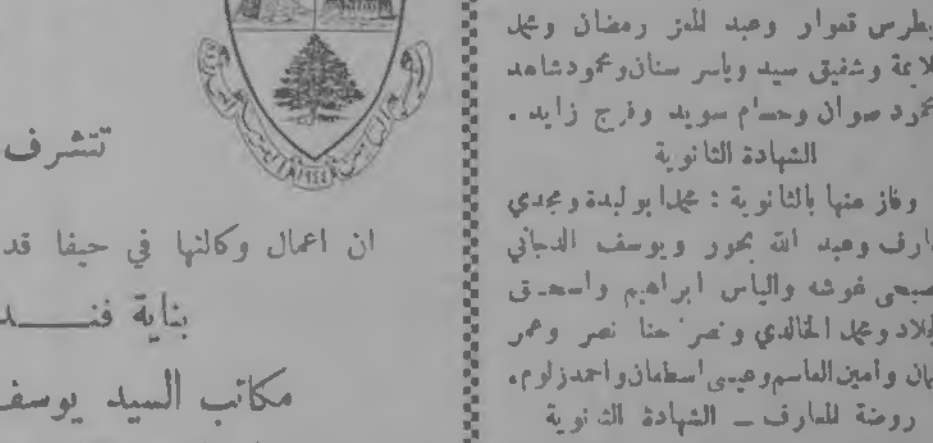 بطرس قموار وعبد المعز رمضان ومحمد
وشفيق سيد وياسر سنان ومحمود شاهد
صوان وحسام سويد وفرج زايد .
الشهادة الثانوية
وفاز منها بالثانوية : محمد ابو لبدة ومجدي
وعبد الله بحور ويوسف الدجاني
غوشه والياس ابراهيم واسحـق
ومحمد الخالدي ونصر حنا نصر وعمر
وامين القاسم وعيسى اسطفان واحمد زلوم .
روضة المعارف ــ الشهادة الثانوية
١٩٤٤
تتشرف
ان اعمال وكالتها في حيفا قد
بناية فنـــــد
مكاتب السيد يوسف